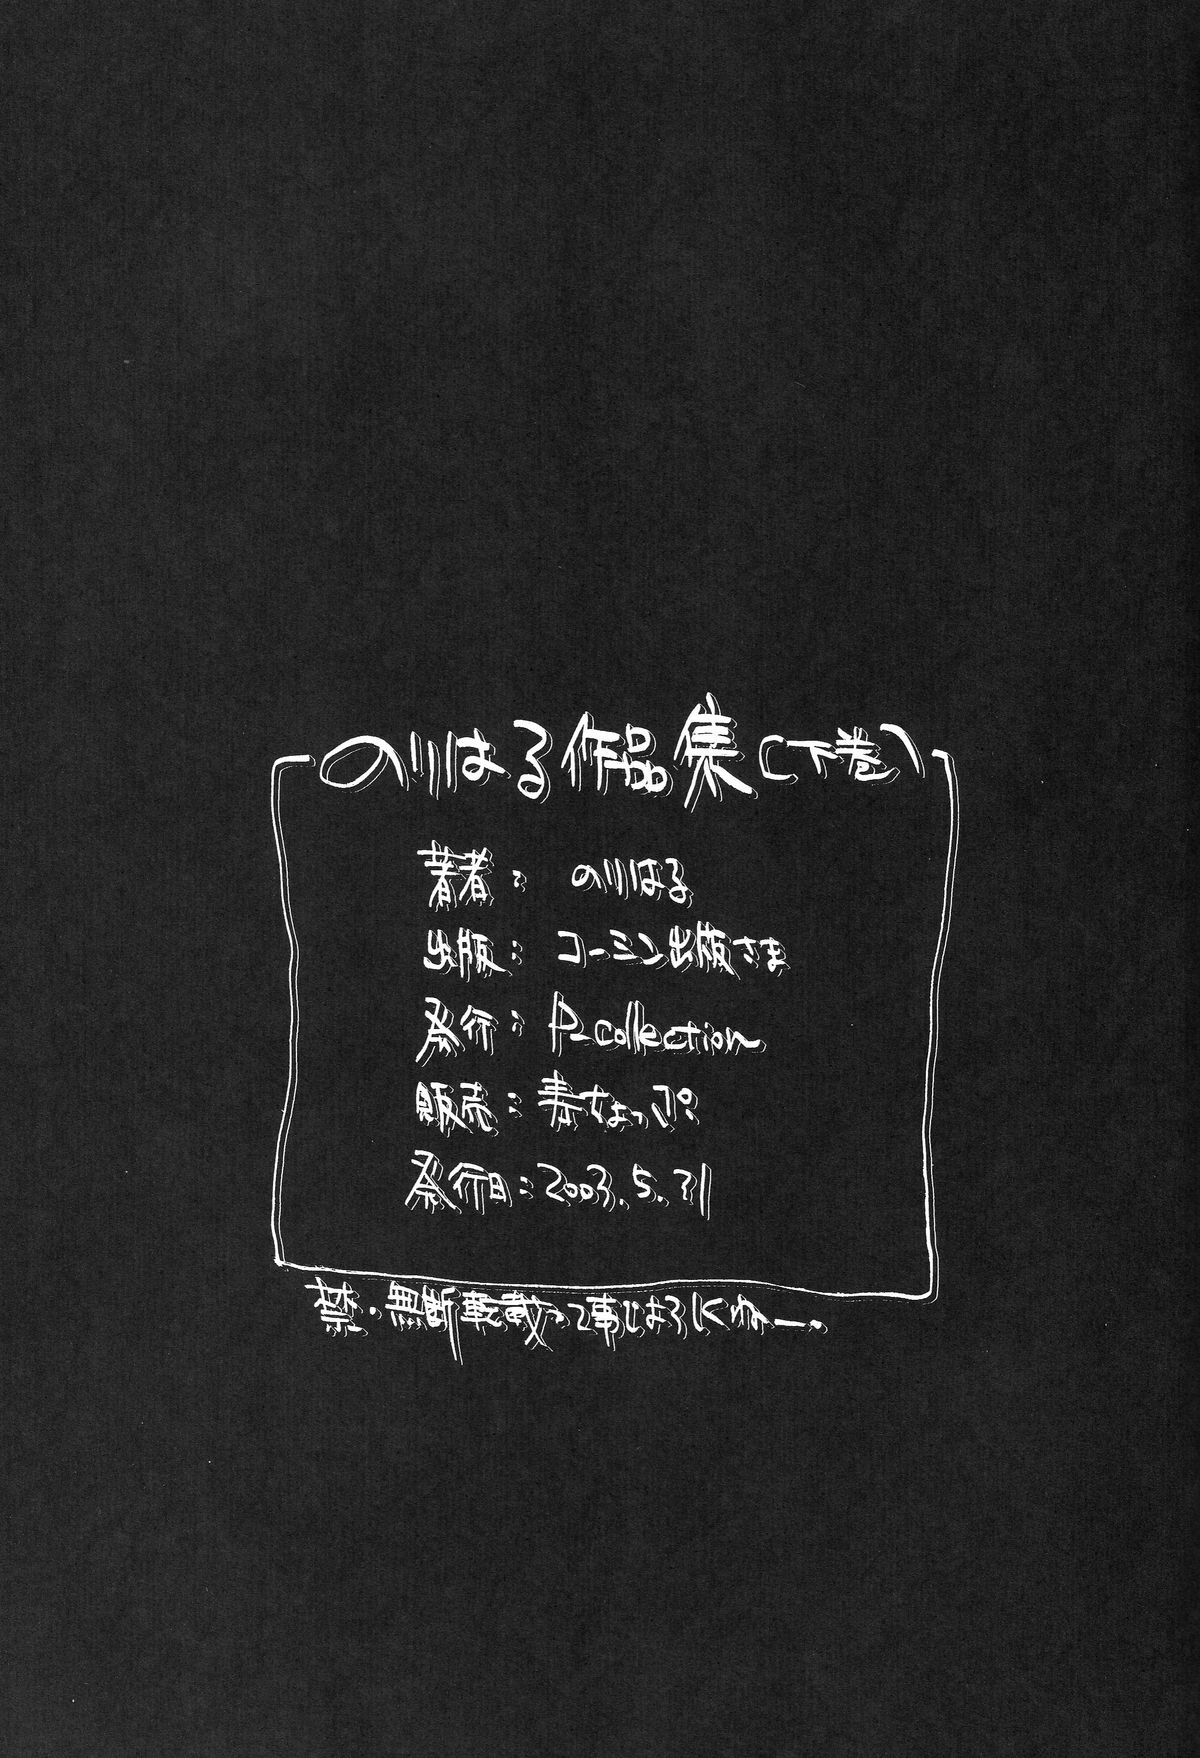 のりはる作品集(下巻)
著者: のりはる
出版: コーミン出版さま
発行: P-collection
販売: 青ちょっぷ
発行日: 2003.5.31
禁・無断転載って事じよろしくねー.